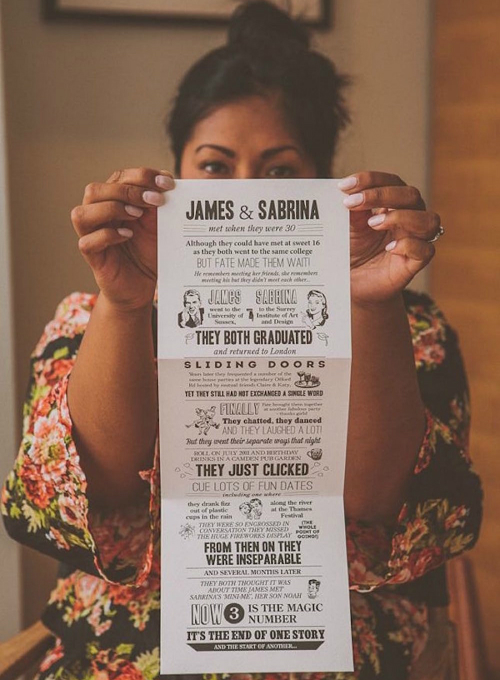 JAMES & SABRINA
met when they were 30
Although they could have met at sweet 16
as they both went to the same college
BUT FATE MADE THEM WAIT!
He remembers meeting her friends, she remembers
meeting his but they didn't meet each other...
JAMES
went to the
University of
Sussex,
SABRINA
to the Surrey
Institute of Art
and Design
THEY BOTH GRADUATED
and returned to London
SLIDING DOORS
Years later they frequented a number of the
same house parties at the legendary Offord
Rd hosted by mutual friends Claire & Katy,
YET THEY STILL HAD NOT EXCHANGED A SINGLE WORD
FINALLY
Fate brought them together
at another fabulous party
They chatted, they danced
AND THEY LAUGHED A LOT!
But they went their separate ways that night
ROLL ON JULY 2011 AND BIRTHDAY
DRINKS IN A CAMDEN PUB GARDEN
THEY JUST CLICKED
CUE LOTS OF FUN DATES
including one where
they drank fizz
out of plastic
cups in the rain
along the river
at the Thames
Festival
THEY WERE SO ENGROSSED IN
CONVERSATION THEY MISSED
THE HUGE FIREWORKS DISPLAY
(THE
WHOLE
POINT OF
GOING!)
FROM THEN ON THEY
WERE INSEPARABLE
AND SEVERAL MONTHS LATER
THEY BOTH THOUGHT IT WAS
ABOUT TIME JAMES MET
SABRINA'S 'MINI-ME', HER SON NOAH
NOW 3 IS THE MAGIC
NUMBER
IT'S THE END OF ONE STORY
AND THE START OF ANOTHER...